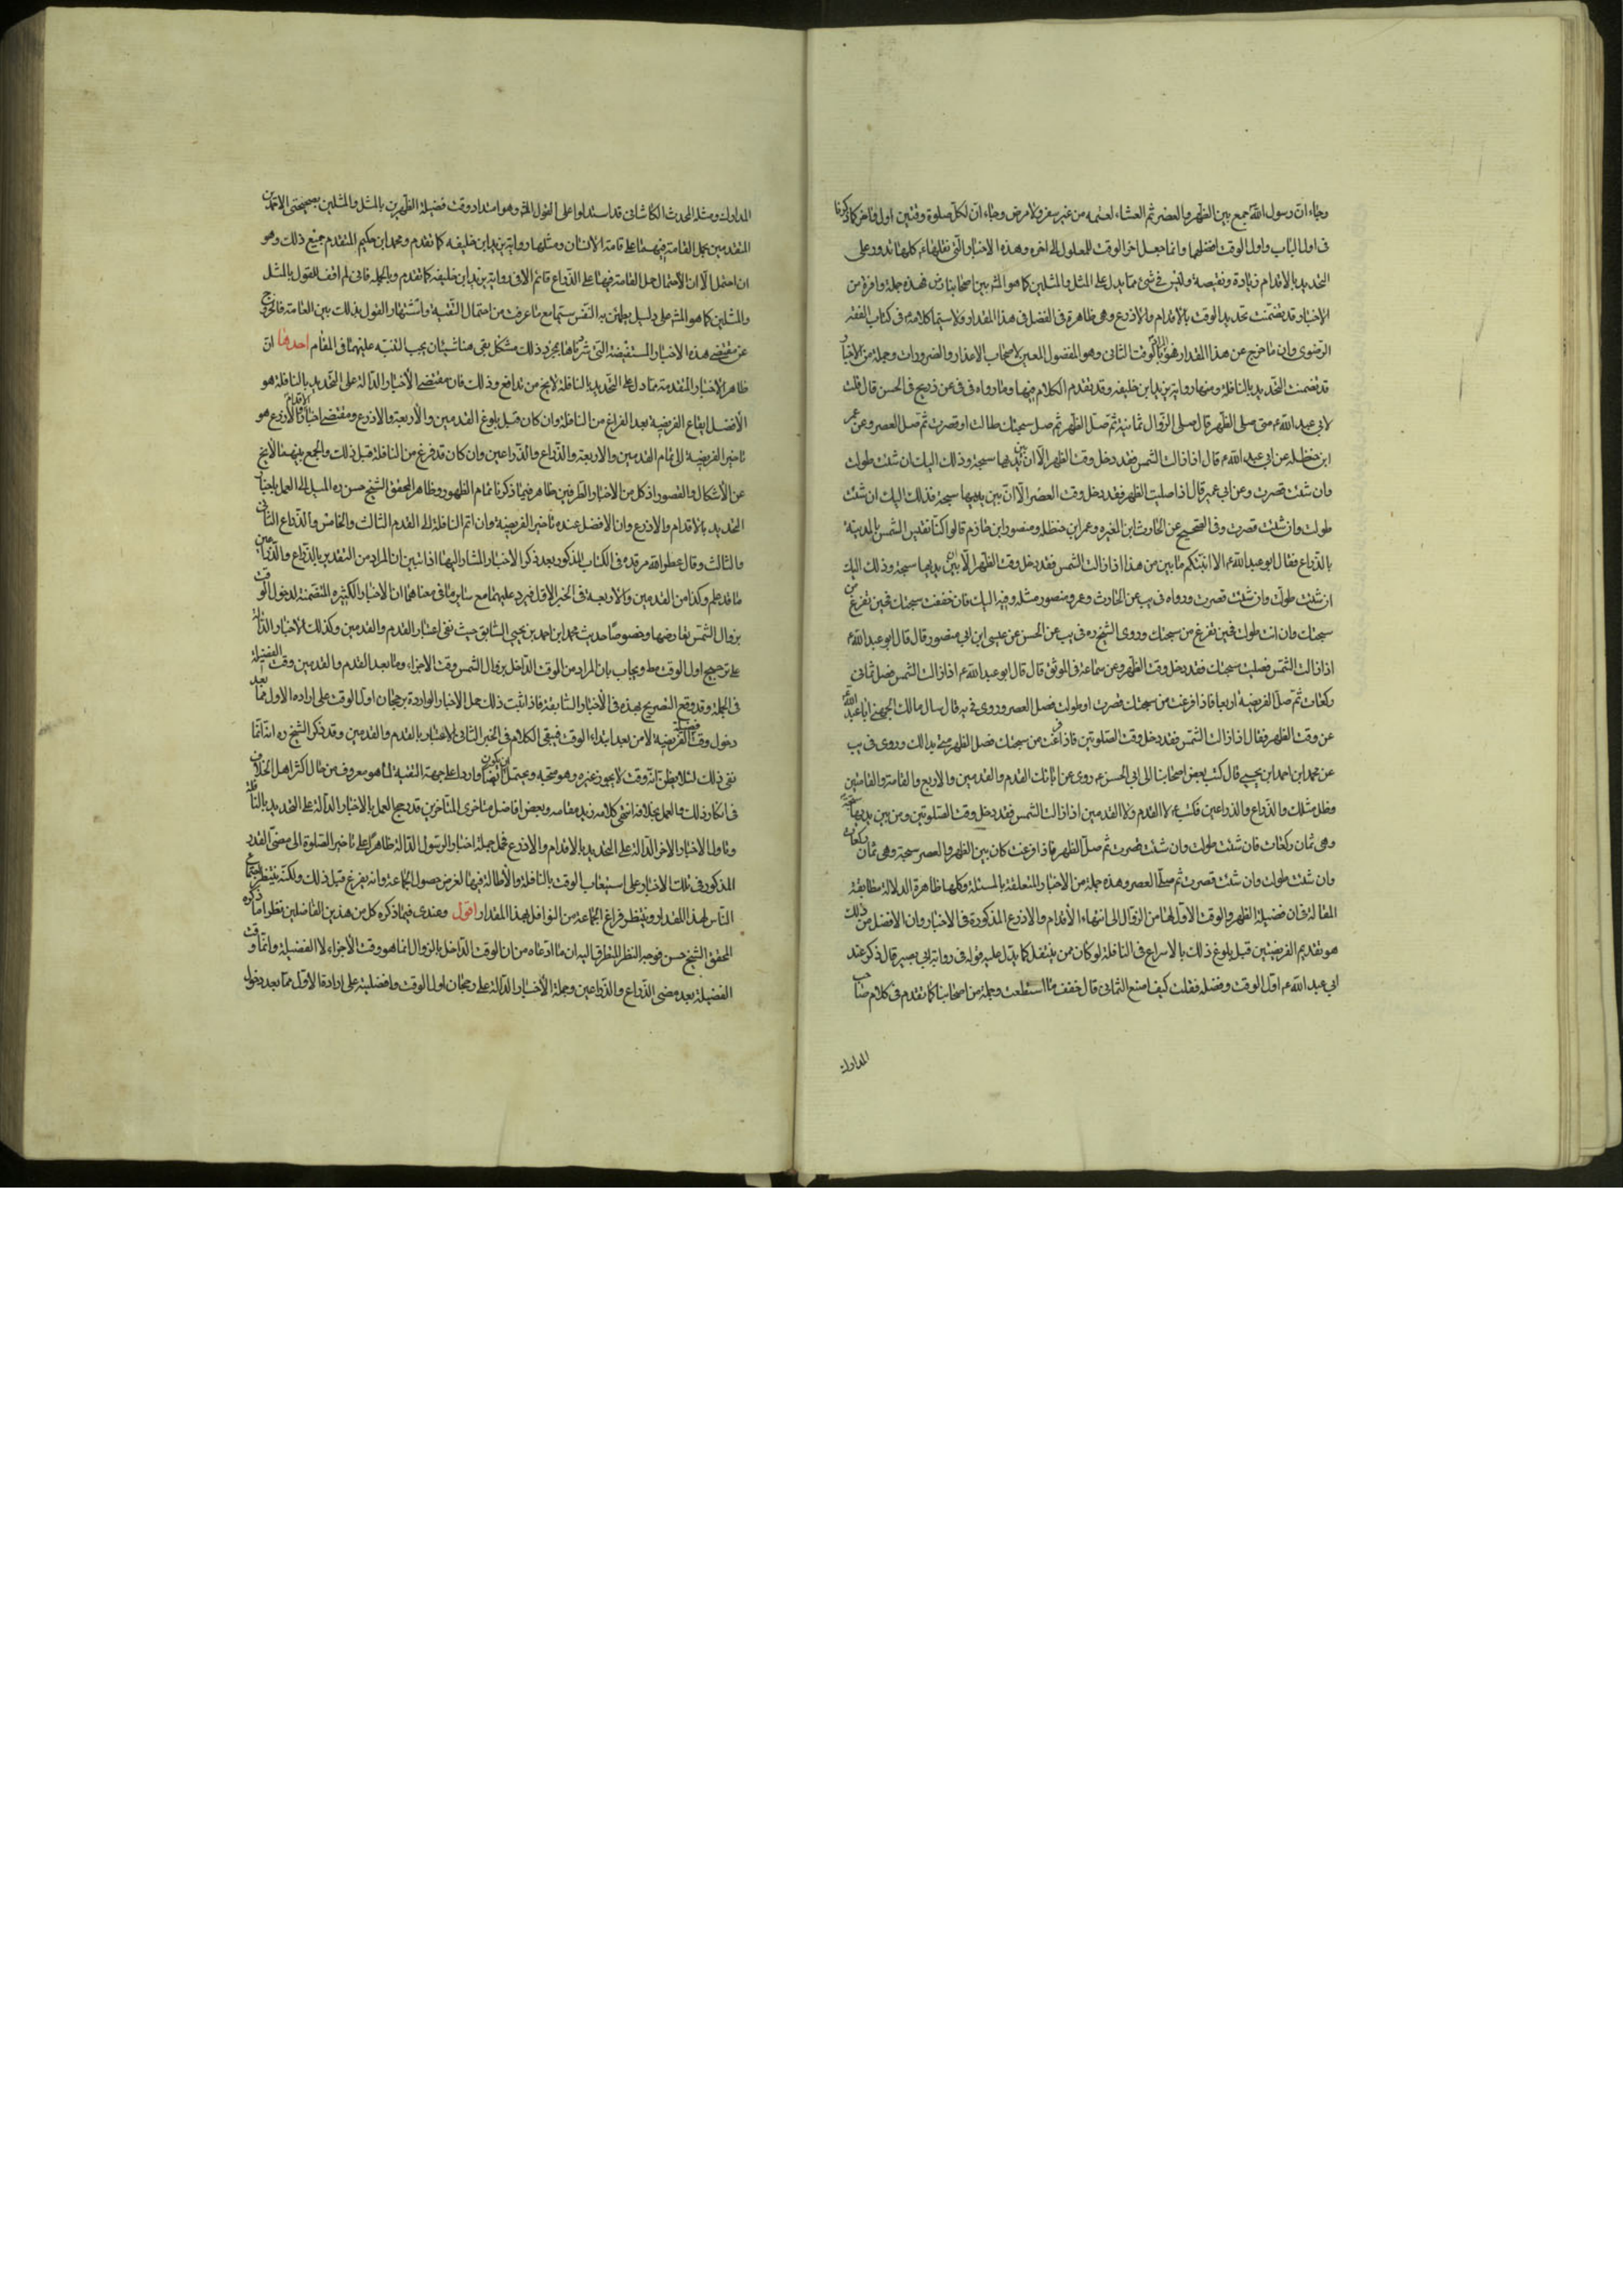 وجاء ان رسول الله جمع بين الظهر والعصر ثم العشاء لعتمه من غير سفر ولا مرض وجاء ان لكل صلوة وقتين اول واخر كما ذكرنا
فى اول الباب واول الوقت افضلهما وانما جعل اخر الوقت للمعلول الى اخره وهذه الاخبار التى نقلها كلها تدور على
التحديد بالاقدام زيادة ونقيصة وليس فى شئ مما يدل على المثل والمثلين كما هو المشهور بين اصحابنا فهذه جملة وافرة من
الاخبار قد تضمنت تحديد الوقت بالاقدام والاذرع وهى ظاهرة فى الفضل فى هذا المقدار ولا سيما كلامه فى كتاب الفقه
الرضوى وان ما خرج عن هذا المقدار فهو الوقت الثانى وهو المفضول المعبر لاصحاب الاعذار والضرورات وجملة من الاخبار
قد تضمنت التحديد بالنافلة ومنها رواية يزيد ابن خليفه وقد تقدم الكلام فيها وما رواه فى فى عن ذريح فى الحسن قال قلت
لابى عبد الله ع متى اصلى الظهر قال صلى الزوال ثمانية ثم صل الظهر ثم صل سبحتك طالت او قصرت ثم صل العصر وعن عمر
ابن حنظلة عن ابى عبد الله ع قال اذا زالت الشمس فقد دخل وقت الظهر الا ان بين يديها سبحة وذلك اليك ان شئت طولت
وان شئت قصرت وعن ابى عمير قال اذا صليت الظهر فقد دخل وقت العصر الا ان بين يديها سبحة فذلك اليك ان شئت
طولت وان شئت قصرت وفى الصحيح عن الحارث ابن المغيره وعمر ابن حنظلة ومنصور ابن حازم قالوا كنا نقيس الشمس بالمدينة
بالذراع فقال ابو عبد الله ع الا انبئكم بابين من هذا اذا زالت الشمس فقد دخل وقت الظهر الا ان بين يديها سبحة وذلك اليك
ان شئت طولت وان شئت قصرت ورواه فى يب عن الحارث وعمر ومنصور مثله وفيه اليك فان خففت سبحتك فحين تفرغ من
سبحتك وان انت طولت فحين تفرغ من سبحتك وروى الشيخ ره فى يب عن الحسن عن عيسى ابن ابى منصور قال قال ابو عبد الله ع
اذا زالت الشمس فصليت سبحتك فقد دخل وقت الظهر وعن سماعة فى الموثق قال قال ابو عبد الله ع اذا زالت الشمس فصل ثمانى
ركعات ثم صل الفريضة اربعا فاذا فرغت من سبحتك قصرت او طولت فصل العصر وروى فى يه قال سال مالك الجهنى ابا عبد الله ع
عن وقت الظهر فقال اذا زالت الشمس فقد دخل وقت الصلوتين فاذا فرغت من سبحتك فصل الظهر متى بدا لك وروى فى يب
عن محمد ابن احمد ابن يحيى قال كتب بعض اصحابنا الى ابى الحسن ع روى عن ابائك القدم والقدمين والاربع والقامة والقامتين
وظل مثلك والذراع والذراعين فكتب ع لا القدم ولا القدمين اذا زالت الشمس فقد دخل وقت الصلوتين ومن بين يديها سبحة
وهى ثمان ركعات فان شئت طولت وان شئت قصرت ثم صل الظهر فاذا فرغت كان بين الظهر والعصر سبحة وهى ثمان ركعات
وان شئت طولت وان شئت قصرت ثم صل العصر وهذه جملة من الاخبار المتعلقة بالمسئلة وكلها ظاهرة الدلالة مطابقة
المقالة فان فضيلة الظهر والوقت الاول لها من الزوال الى انتهاء الاقدام والاذرع المذكورة فى الاخبار وان الافضل من ذلك
هو تقديم الفريضتين قبل بلوغ ذلك بالاسراع فى النافلة لو كان ممن يتنفل كما يدل عليه قوله فى رواية ابى بصير قال ذكر عند
ابى عبد الله ع اول الوقت وفضله فقلت كيف اصنع الثمانى قال خفف ما استطعت وجملة من اصحابنا كما تقدم فى كلام صاحب
المدارك
المدارك ومثله المحدث الكاشانى قد استدلوا على القول المشهور وهو امتداد وقت فضيلة الظهرين بالمثل والمثلين بصحيحتى الاحمدين
المتقدمين بحمل القامة فيهما على قامة الانسان ومثلها رواية يزيد ابن خليفه كما تقدم ومحمد ابن حكيم المتقدم جميع ذلك وهو
ان احتمل الا ان الاحتمال حمل القامة فيها على الذراع قائم الا فى رواية يزيد ابن خليفه كما تقدم وبالجملة فانى لم اقف للقول بالمثل
والمثلين كما هو المشهور على دليل يطمئن به النفس سيما مع ما عرفت من احتمال التقية واشتهار القول بذلك بين العامة فالخروج
عن مقتضى هذه الاخبار المستفيضة التى سردناها بمجرد ذلك مشكل بقى هنا شيئان يجب التنبيه عليهما فى المقام احدها ان
ظاهر الاخبار المتقدمة مما دل على التحديد بالنافلة لا يخ من تدافع وذلك فان مقتضى الاخبار الدالة على التحديد بالنافلة هو
الافضل ايقاع الفريضة بعد الفراغ من النافلة وان كان قبل بلوغ القدمين والاربعة والاذرع ومقتضى اخبار الاقدام والاذرع هو
تاخير الفريضة الى تمام القدمين والاربعة والذراع والذراعين وان كان قد فرغ من النافلة قبل ذلك والجمع بينهما لا يخ
عن الاشكال والقصور اذ كل من الاخبار الطرفين ظاهر فيما ذكرنا تمام الظهور وظاهر المحقق الشيخ حسن ره الميل الى العمل باخبار
التحديد بالاقدام والاذرع وان الافضل عنده تاخير الفريضة وان اتم النافلة الى القدم الثالث والخامس والذراع الثانى
والثالث وقال عطر الله مرقده فى الكتاب المذكور بعد ذكر الاخبار المشار اليها اذا تبين ان المراد من التقدير بالذراع والذراعين
ما قد علم وكذا من القدمين والاربعة فى الخبر الاول فيرد عليهما مع سائر ما فى معناهما ان الاخبار الكثيره المتضمنة لدخول الوقت
بزوال الشمس تعارضها وخصوصا حديث محمد ابن احمد بن يحيى السابق حيث نفى اعتبار القدم والقدمين وكذلك الاخبار الدالة
على ترجيح اول الوقت مط ويجاب بان المراد من الوقت الداخل بزوال الشمس وقت الاجزاء وما بعد القدم والقدمين وقت الفضيلة
فى الجملة وقد وقع التصريح بهذه فى الاخبار السابقة فاذا ثبت ذلك حمل الاخبار الواردة برجحان اول الوقت على اراده الاول مما بعد
دخول وقت فضيلة الفريضة لا من بعد ابتداء الوقت فيبقى الكلام فى الخبر الثانى للاعتبار بالقدم والقدمين وقد ذكر الشيخ ره انه انما
نفى ذلك لئلا يظن انه وقت لا يجوز غيره وهو متجه ويحتمل ان يكون ايضا واردا على جهة التقية لما هو معروف من حال اكثر اهل الخلاف
فى انكار ذلك والعمل بخلافه انتهى كلامه زيد مقامه وبعض افاضل متاخرى المتاخرين قد رجح العمل بالاخبار الدالة على التحديد بالنافلة
وتاول الاخبار الاخر الدالة على التحديد بالاقدام والاذرع فحمل جملة اخبار الرسول الدالة ظاهرا على تاخير الصلوة الى مضى القدر
المذكور فى تلك الاخبار على استيعاب الوقت بالنافلة والاطالة فيها لغرض حصول الجماعة وانه يفرغ قبل ذلك ولكنه ينتظر اجتماع
الناس لهذا المقدار وينتظر فراغ الجماعة من النوافل بهذا المقدار اقول وعندى فيما ذكره كل من هذين الفاضلين نظر اما ما ذكره
المحقق الشيخ حسن فوجه النظر المتطرق اليه ان ما ادعاه من ان الوقت الداخل بالزوال انما هو وقت الاجزاء لا الفضيلة وانما وقت
الفضيلة بعد مضى الذراع والذراعين وجملة الاخبار الدالة على رجحان اول الوقت وافضليته على ارادة الاول مما بعد دخول